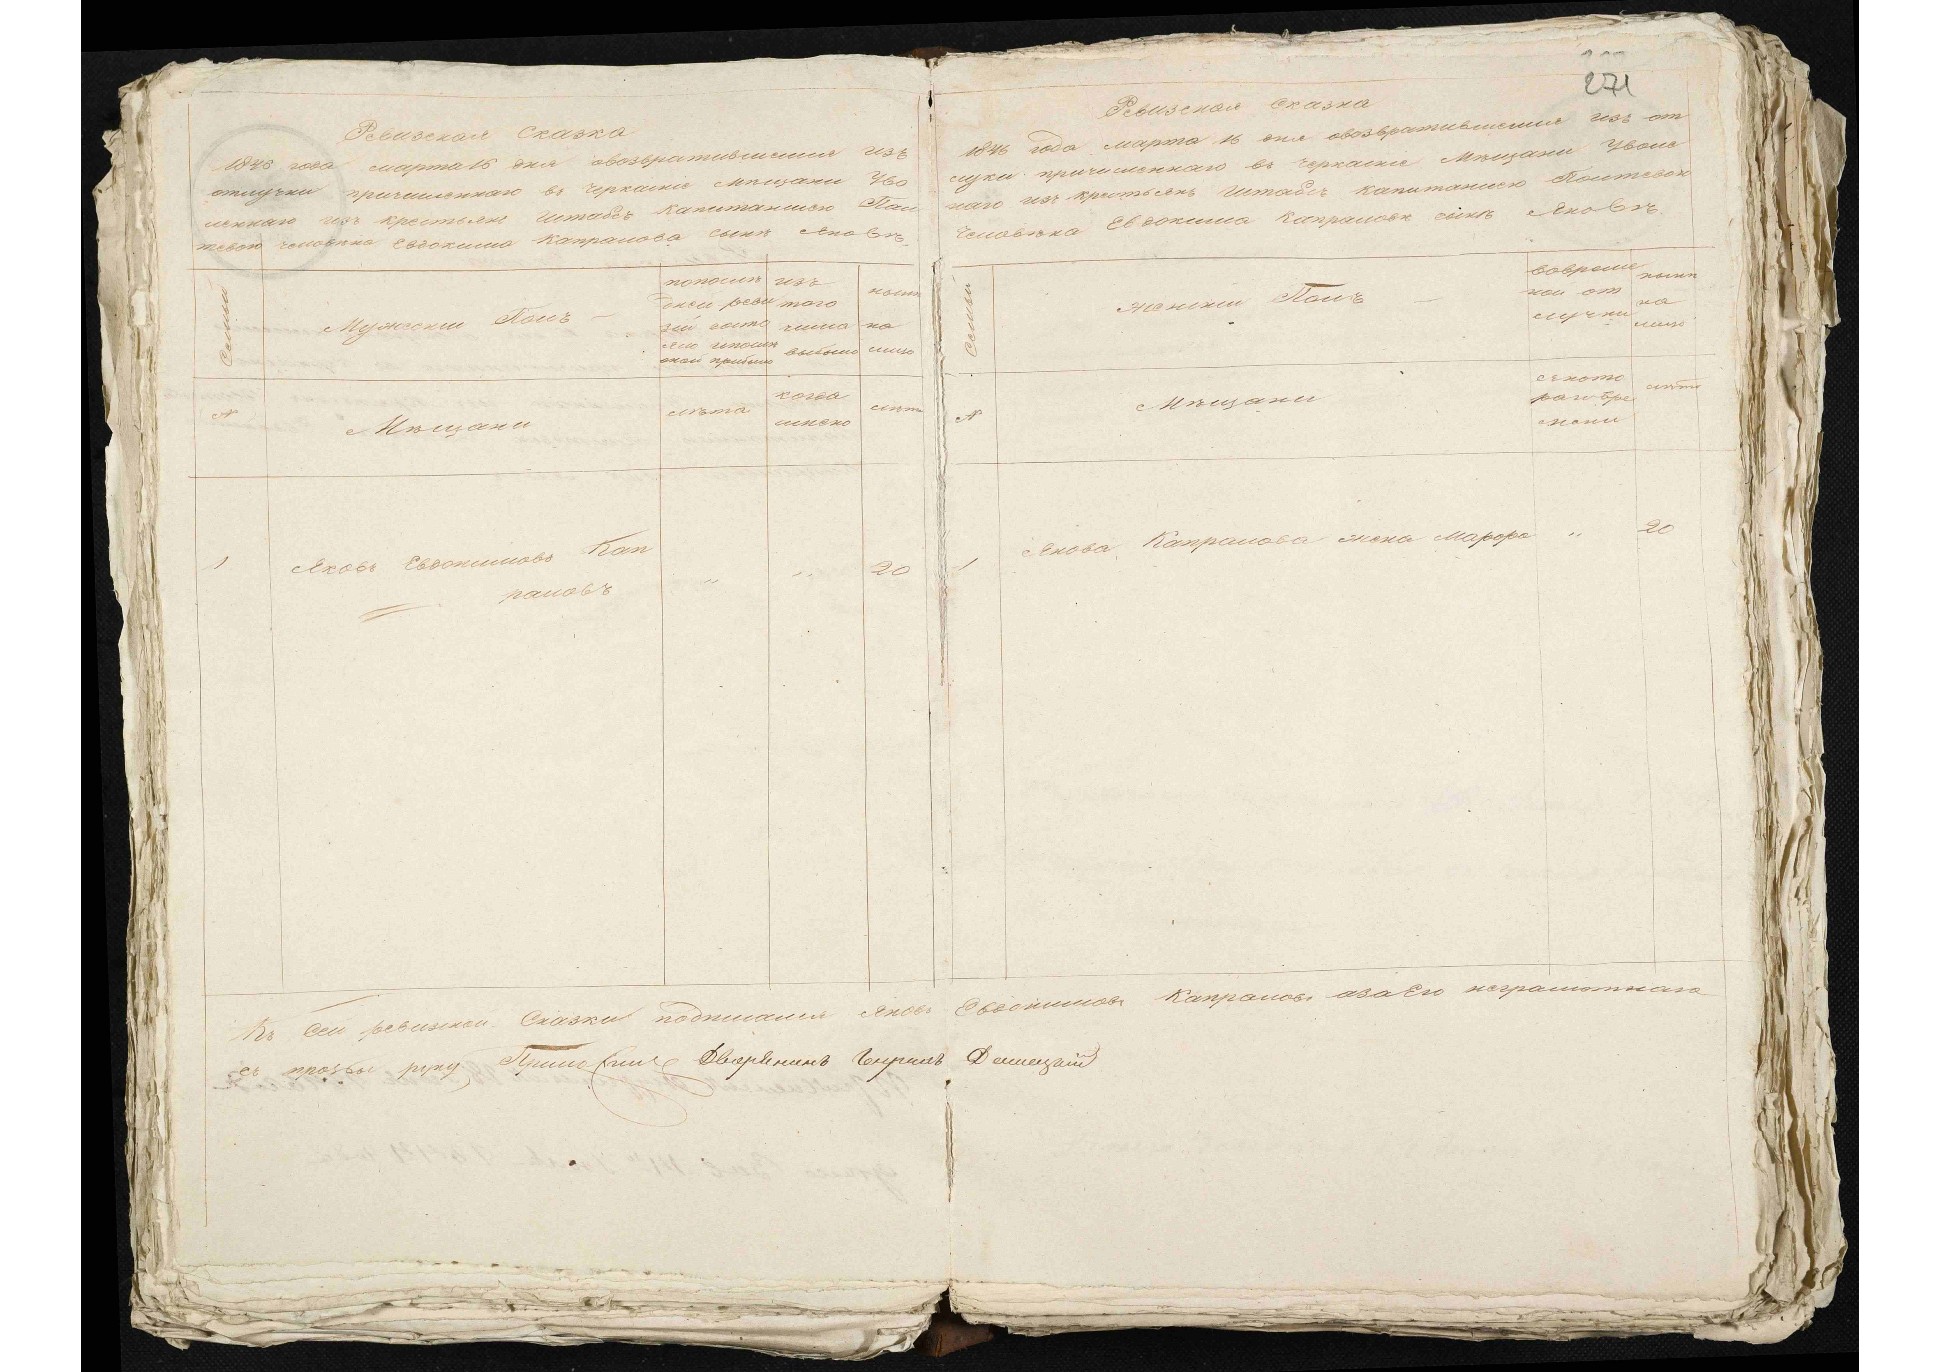 Ревизская Сказка
1846 года марта 16 дня овозвратившемся изъ
отлучки причисленнаго въ черкаские Мещани Уво
леннаго изъ крестьян штабсъ Капитаншею Пол
тевою человека Евдокима Капралова сынъ Яковъ.
Семьи
Мужеский Полъ —
попослѣ
дней реви
зій состо
яло ипослѣ
оной прибыло
изъ
того
числа
выбыло
нынѣ
на
лицо
№
Мѣщани
лѣта
когда
имено
лѣта
1
Яковъ Евдокимовъ Кап
раловъ
„
„
20
271
Ревизская Сказка
1846 года марта 16 дня овозвратившемся изъ от
лучки причисленнаго въ черкаские Мѣщани Уволе
наго изъ крестьянъ Штабсъ Капитаншею Полтевой
Человѣка Евдокима Капраловa сынъ Яковъ.
Семьи
женский Полъ —
вовреме
ной от
лучки
нынѣ
на
лицо
№
Мѣщани
ското
раго вре
мени
лѣта
1
Якова Капралова жена Марфа
„
20
Къ сей ревизкой Сказки подписался Яковъ Евдокимовъ Капраловъ азаего неграмотнаго
съ прозбы руку Дворянинъ Кирилъ